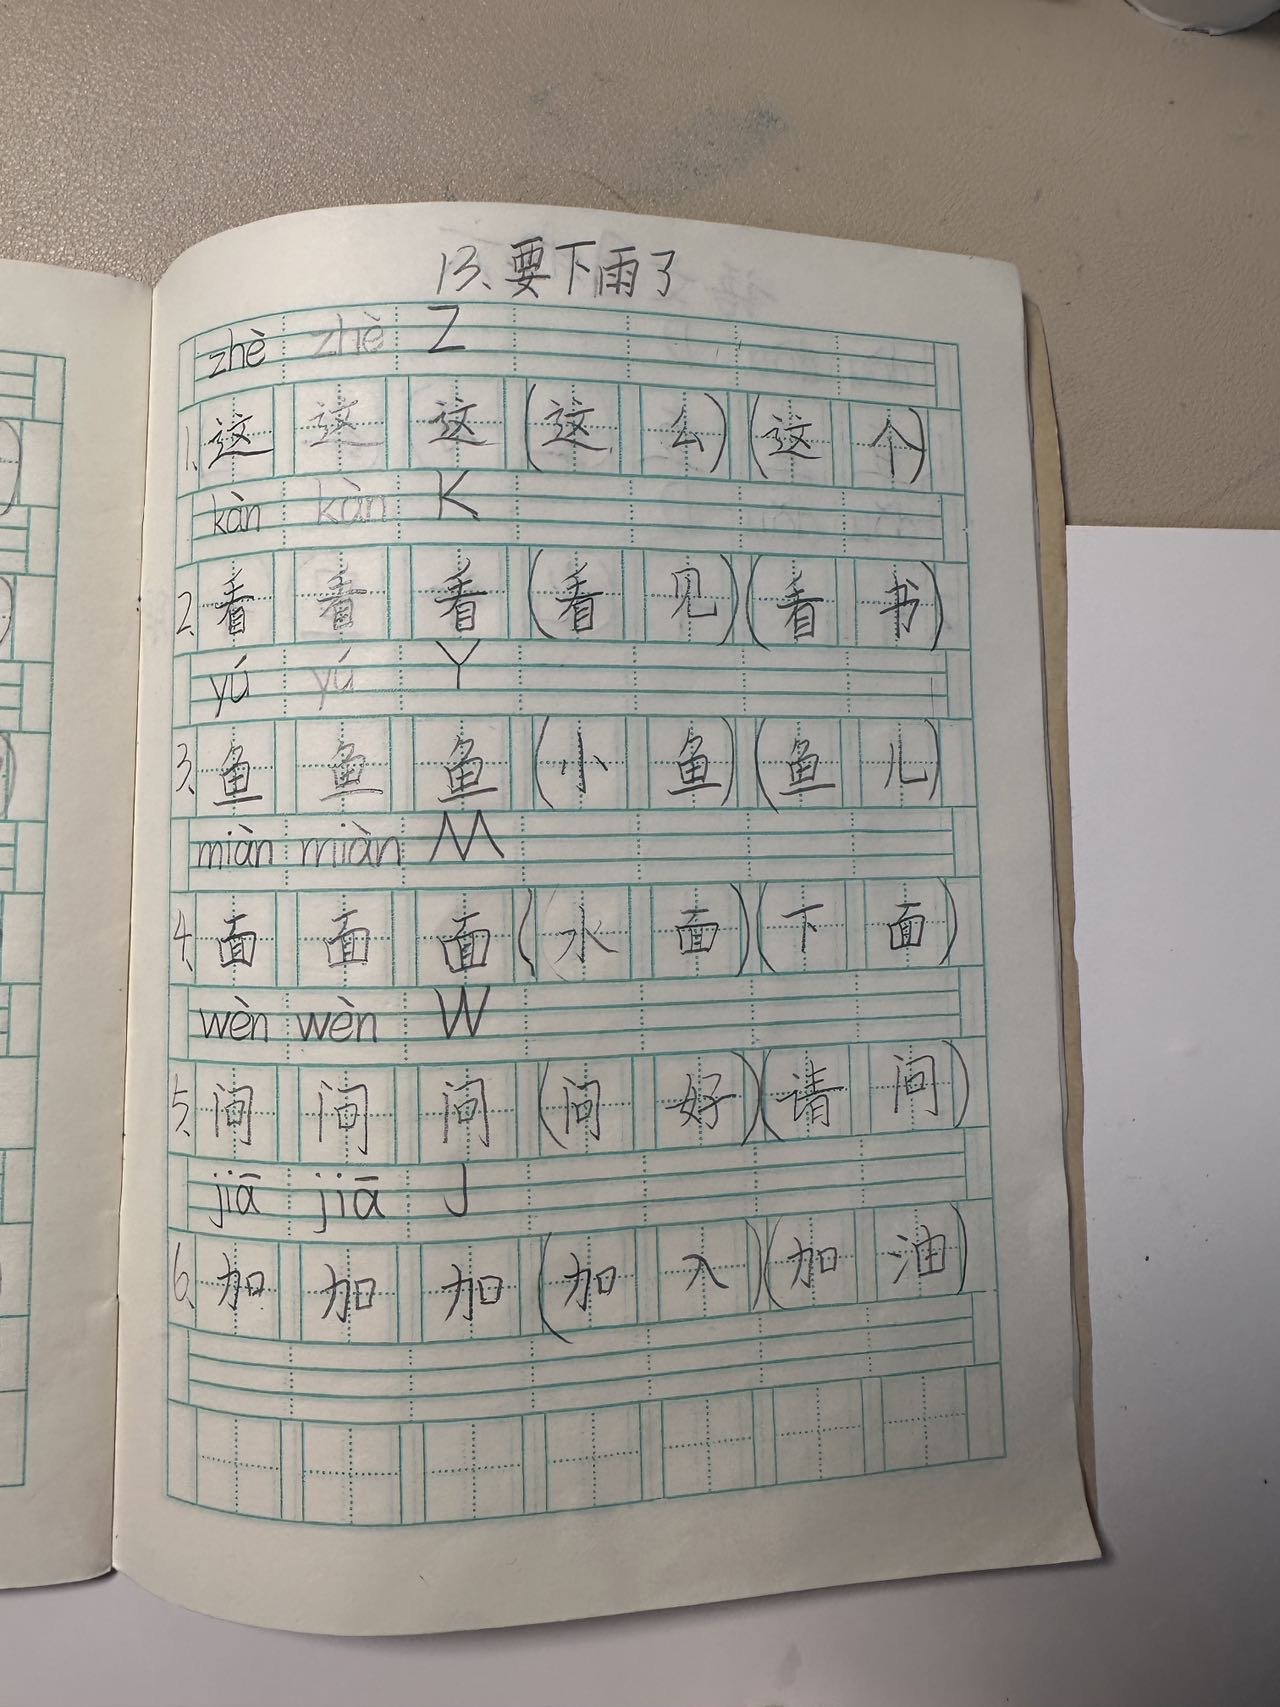 13、要下雨了
zhè zhè Z
1、这 这 这 (这 么) (这 个)
kàn kàn K
2、看 看 看 (看 见) (看 书)
yú yú Y
3、鱼 鱼 鱼 (小 鱼) (鱼 儿)
miàn miàn M
4、面 面 面 (水 面) (下 面)
wèn wèn W
5、问 问 问 (问 好) (请 问)
jiā jiā J
6、加 加 加 (加 入) (加 油)